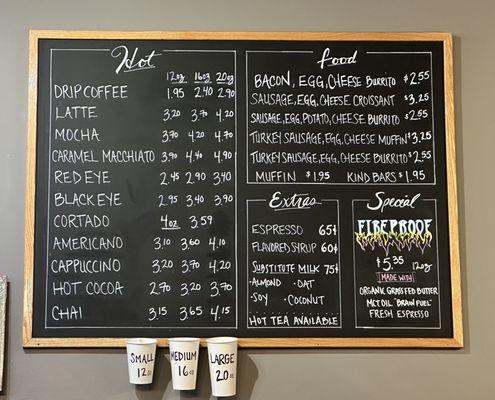 Hot
12oz 16oz 20oz
DRIP COFFEE 1.95 2.40 2.90
LATTE 3.20 3.70 4.20
MOCHA 3.70 4.20 4.70
CARAMEL MACCHIATO 3.90 4.40 4.90
RED EYE 2.45 2.90 3.40
BLACK EYE 2.95 3.40 3.90
CORTADO 4oz 3.59
AMERICANO 3.10 3.60 4.10
CAPPUCCINO 3.20 3.70 4.20
HOT COCOA 2.70 3.20 3.70
CHAI 3.15 3.65 4.15
food
BACON, EGG, CHEESE BURRITO $2.55
SAUSAGE, EGG, CHEESE CROISSANT $3.25
SAUSAGE, EGG, POTATO, CHEESE BURRITO $2.55
TURKEY SAUSAGE, EGG, CHEESE MUFFIN $3.25
TURKEY SAUSAGE, EGG, CHEESE BURRITO $2.55
MUFFIN $1.95 KIND BARS $1.95
Extras
ESPRESSO 65¢
FLAVORED SYRUP 60¢
SUBSTITUTE MILK 75¢
·ALMOND ·OAT
·SOY ·COCONUT
HOT TEA AVAILABLE
Special
FIREPROOF
$5.35 12oz
MADE WITH
ORGANIC GRASSFED BUTTER
MCT OIL "BRAIN FUEL"
FRESH ESPRESSO
SMALL MEDIUM LARGE
12oz 16oz 20oz